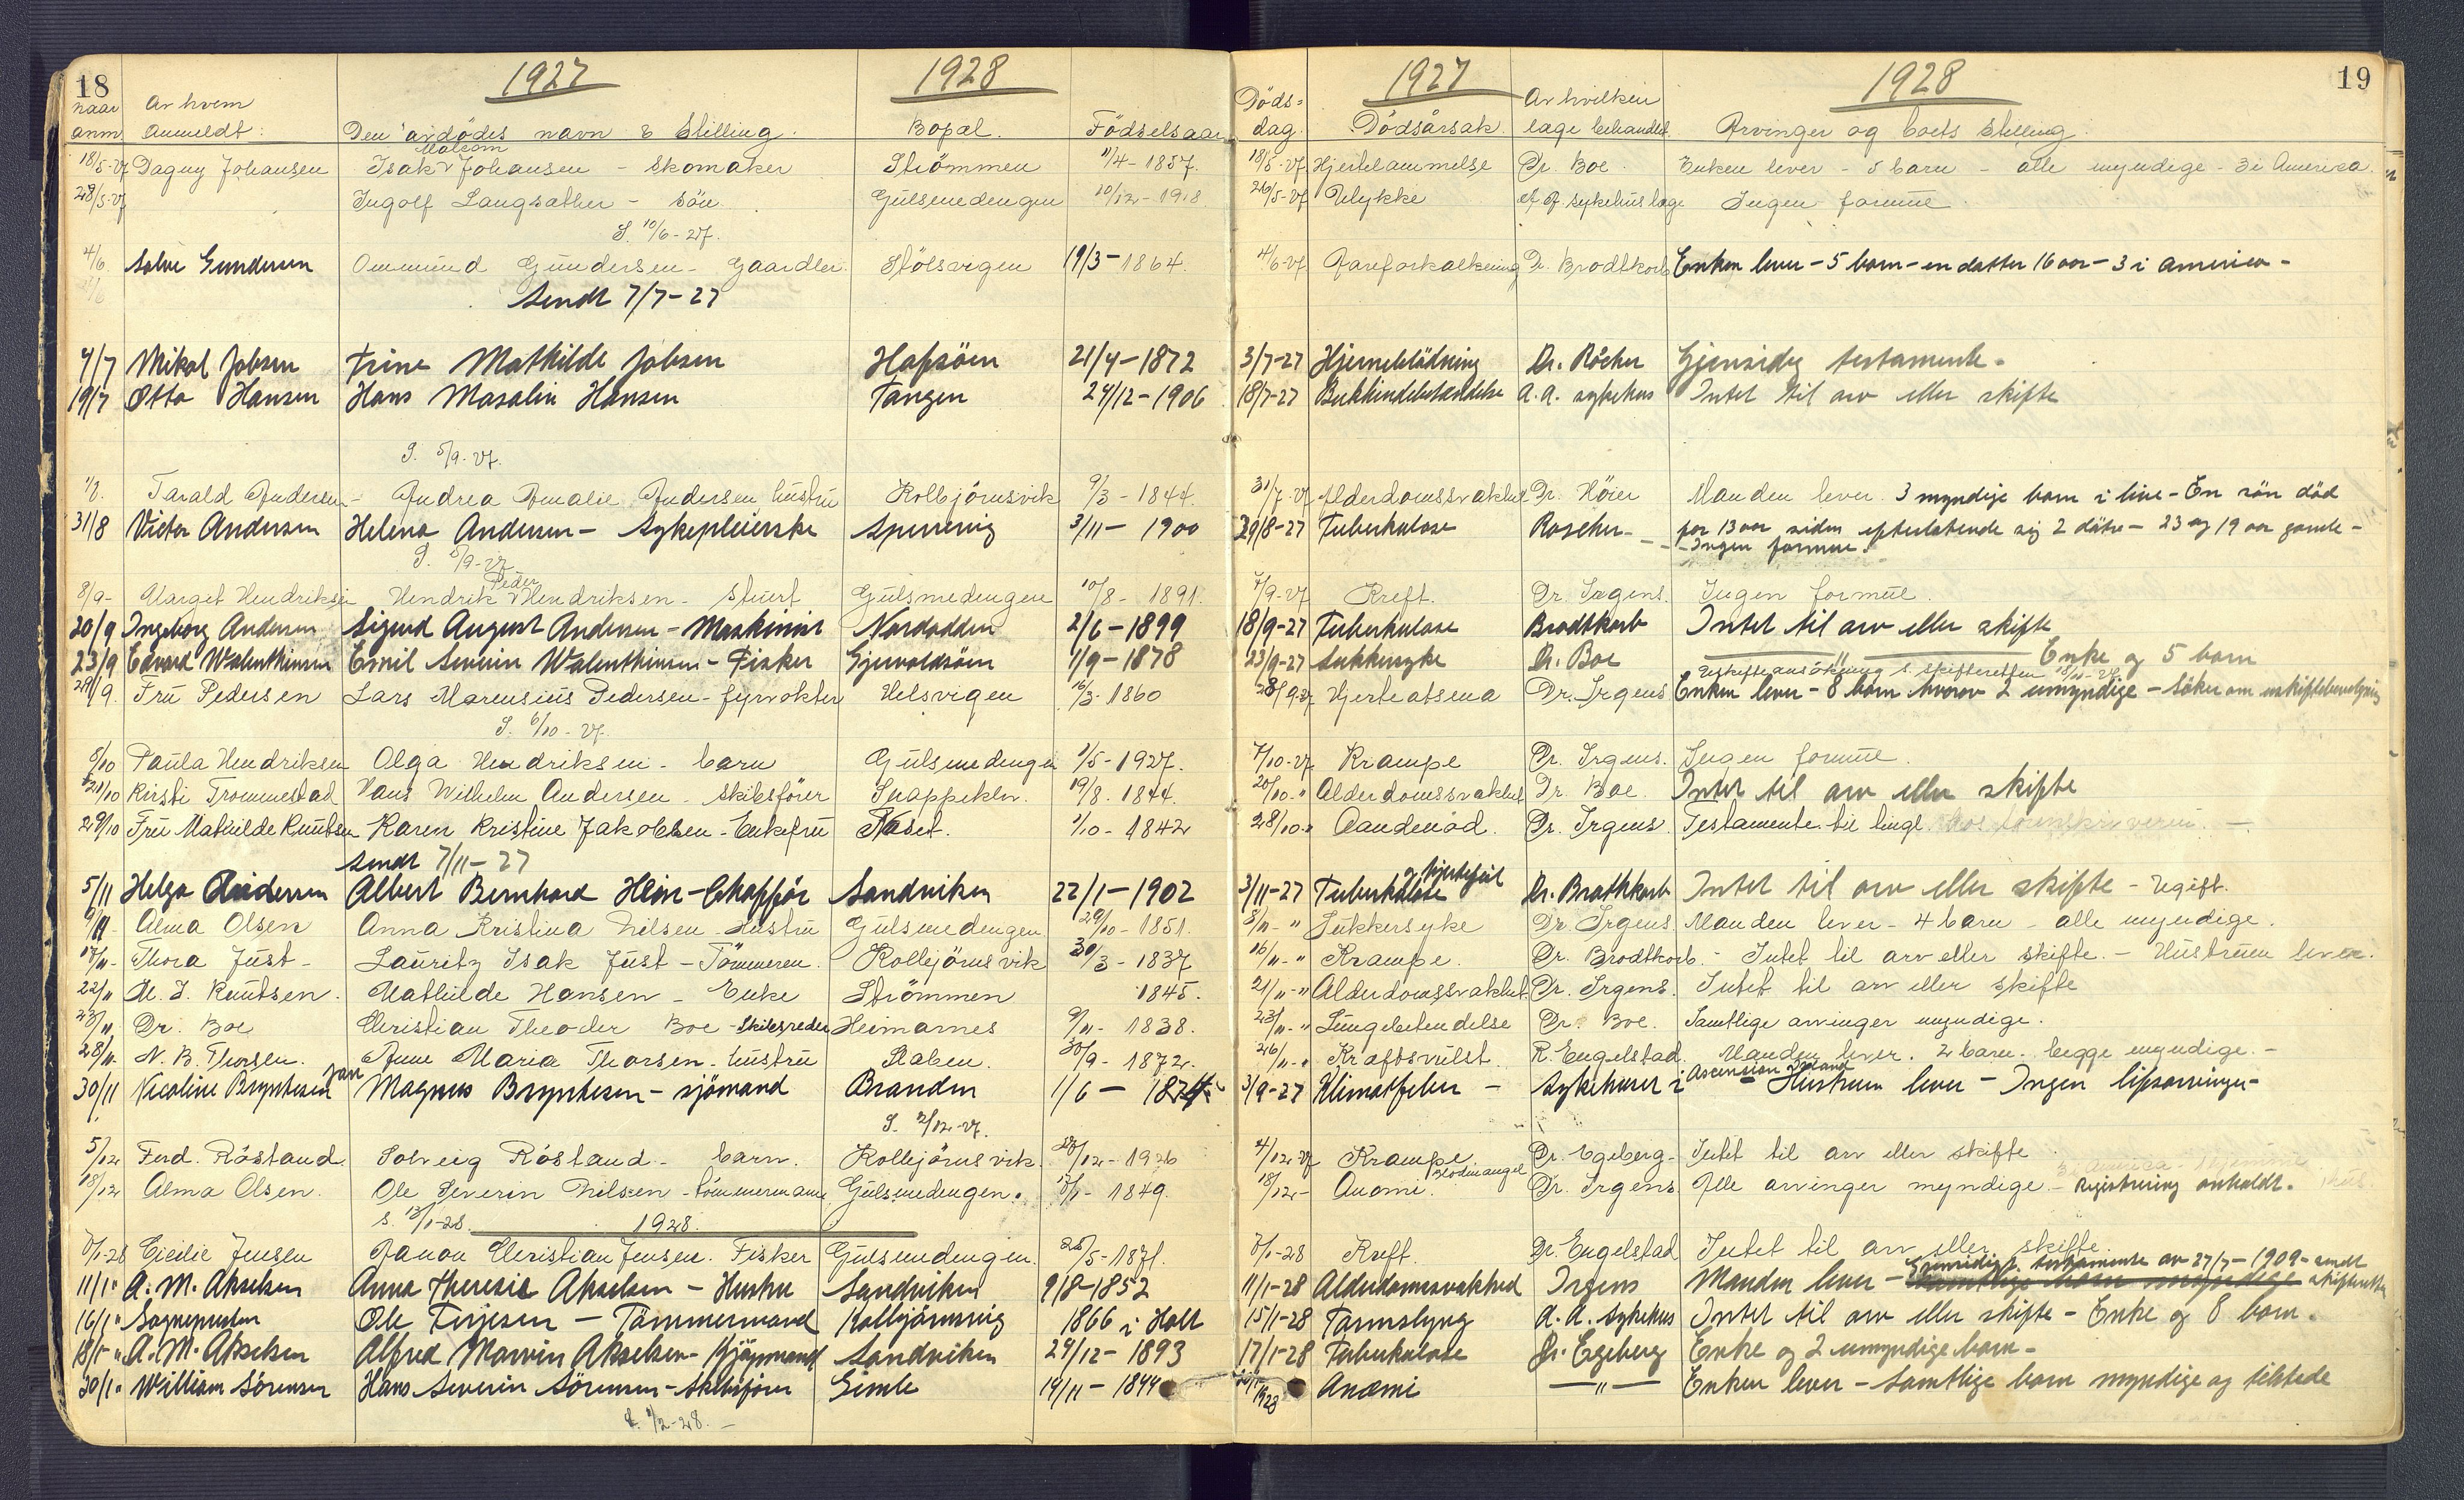 18 1927 1928
naar anm. Av hvem anmeldt: Den avdödes navn & Stilling. Bopæl. Födselsaar
18/5-27 Dagny Johansen Isak Malcom Johansen - Skomaker Strömmen 11/4-1857.
28/5-27 Ingolf Langsæther - Sön. Gulsmedengen 20/12-1918.
S. 10/6-27.
4/6 Salve Gundersen Ommund Gundersen - Gaardbr. Stölsvigen 19/3-1864.
Sendt 7/7-27
4/7 Mikal Jobsen Trine Mathilde Jobsen Hafsöen 21/4-1872
19/7 Otto Hansen Hans Masalin Hansen Tangen 24/12-1906
S. 5/9-27.
1/8. Tarald Andersen - Andrea Amalie Andersen hustru Kolbjörnsvik 9/3-1844.
31/8 Victor Andersen Helena Andersen - Sykepleierske Spervig 3/11-1900
S. 5/9-27
8/9- Marget Hendriksen Hendrik Peder Hendriksen - Stuert Gulsmedengen 10/8-1891.
20/9 Ingeborg Andersen Sigurd August Andersen - Maskinist Nordodden 2/6-1899
23/9 Edvard Walenthinsen Emil Severin Walenthinsen - Fisker Gjervoldsöen 1/9-1878
29/9. Fru Pedersen Lars Marensius Pedersen - fyrvokter Helsvigen 16/3-1860
S. 6/10-27.
8/10 Paula Hendriksen Olga Hendriksen - barn Gulsmedengen 1/5-1927.
21/10 Kirsti Trommestad Hans Wilhelm Andersen - Skibsförer Snappekln. 19/8-1844.
29/10 Fru Mathilde Knutsen Karen Kristine Jakobsen - Enkefru Næset. 1/10-1842
Sendt 7/11-27
5/11 Helga Andersen Albert Bernhard Hein - Chafför Sandviken 22/1-1902
9/11- Alma Olsen Anna Kristina Nilsen - Hustru Gulsmedengen 29/10-1851.
17/11- Thora Just - Lauritz Isak Just - Tömmerm. Kolbjörnsvik 30/3-1837
22/11 M. J. Knutsen. Mathilde Hansen - Enke Strömmen 1845.
23/11. Dr. Boe Christian Theodor Boe - Skibsreder Heimarnes 9/11-1838.
28/11. N. B. Thorsen. Anne Maria Thorsen - hustru Raben. 30/9-1872.
30/11 Nicoline Bryntesen Jan Magnus Bryntesen - sjömand Branden 1/6-1874
S. 2/12-27.
5/12 Ferd. Röstand. Solveig Röstand - barn. Kolbjörnsvik. 28/12-1926
18/12 Alma Olsen. Ole Severin Nilsen - tömmermann Gulsmedengen. 17/1-1849.
S. 13/1-28. 1928.
7/1-28 Cicilie Jensen Janan Christian Jensen. Fisker Gulsmedengen. 25/5-1871.
11/1" A. M. Akselsen Anna Theresie Akselsen - Hustru Sandviken 9/8-1852
16/1" Sognepresten Ole Terjesen - Tömmermand Kolbjörnsvig 1866 i Holt
18/1-" A. M. Akselsen Alfred Marvin Akselsen - Kjöpmand Sandviken 24/12-1893
30/1" William Sörensen Hans Severin Sörensen - Skibsförer Gimle 14/11-1844
S. 2/2-28. -
1927 1928 19
Döds-dag. Dödsårsak. Av hvilken læge behandlet. Arvinger og boets Stilling.
18/5-27 Hjertelammelse Dr. Boe. Enken lever - 5 barn - alle myndige - 3 i America.
26/5-27 Ulykke Sykehuslæge Ingen formue.
4/6-27 Aareforkalkning Dr. Brodtkorb Enken lever - 5 barn - en datter 16 aar - 3 i America -
3/7-27 Hjerneblödning Dr. Röcher Gjensidig testamente -
18/7-27 Bukhindebetændelse A. A. sykehus Intet til arv eller skifte
31/7-27 Alderdomssvakhet Dr. Höier Manden lever. 3 myndige barn i live - En sön död
29/8-27 Tuberkulose Roscher - for 13 aar siden efterlatende sig 2 dötre - 23 og 19 aar gamle -
- Ingen formue.
7/9-27 Kreft. Dr. Irgens. Ingen formue.
18/9-27 Tuberkulose Brodtkorb Intet til arv eller skifte
23/9-27 Sukkersyke Dr. Boe — " — Enke og 5 barn
Uskifteansökning s. skifteretten 18/11-27
28/9-27 Hjerteatsma Dr. Irgens Enken lever - 8 barn hvorav 2 umyndige - Söker om uskiftebevilgning
7/10-27 Krampe Dr. Irgens. Ingen formue.
20/10-" Alderdomssvakhet Dr. Boe. Intet til arv eller skifte
28/10-" Aandenöd. Dr. Irgens. Testamente til tingl. hos sorenskriveren. -
3/11-27 Tuberkulose og hjertefeil Dr. Brothkorb Intet til arv eller skifte - Ugift.
8/11-" Sukkersyke Dr. Irgens Manden lever - 4 barn - alle myndige.
16/11-" Krampe. Dr. Brodtkorb. - Intet til arv eller skifte. - Hustruen lever.
21/11-" Alderdomssvakhet. Dr. Irgens. Intet til arv eller skifte
23/11-" Lungebetendelse Dr. Boe. Samtlige arvinger myndige.
26/11-" Kræftsvulst. R. Engelstad. Manden lever. 2 barn - begge myndige. -
3/9-27 Klimatfeber - Sykehuset i Ascension Island - Hustruen lever - Ingen livsarvinger -
4/12-27 Krampe Dr. Egeberg - Intet til arv eller skifte
18/12- Anomi. Blodmangel Dr. Irgens Alle arvinger myndige - Registrering anholdt.
7/1-28 Kreft. Dr. Engelstad Intet til arv eller skifte.
11/1-28 Alderdomssvakhed Irgens Manden lever - Gjensidigt testamente av 27/7-1909 - sendt skifteretten
15/1-28 Tarmslyng A. A. Sykehus Intet til arv eller skifte - Enke og 8 barn.
17/1-28 Tuberkulose Dr. Egeberg Enke og 2 umyndige barn -
1928 Anæmi — " — Enken lever - Samtlige barn myndige og tilstede